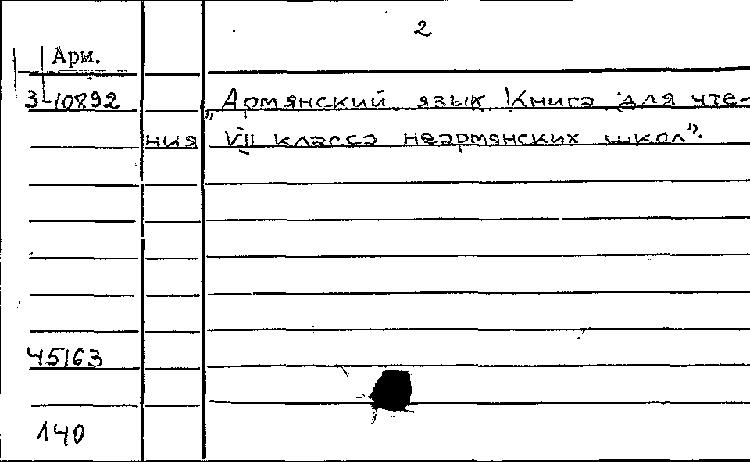 2
Арм.
3-10892
„Армянский язык Книга для чте-
ния VII класса неармянских школ”.
45163
140